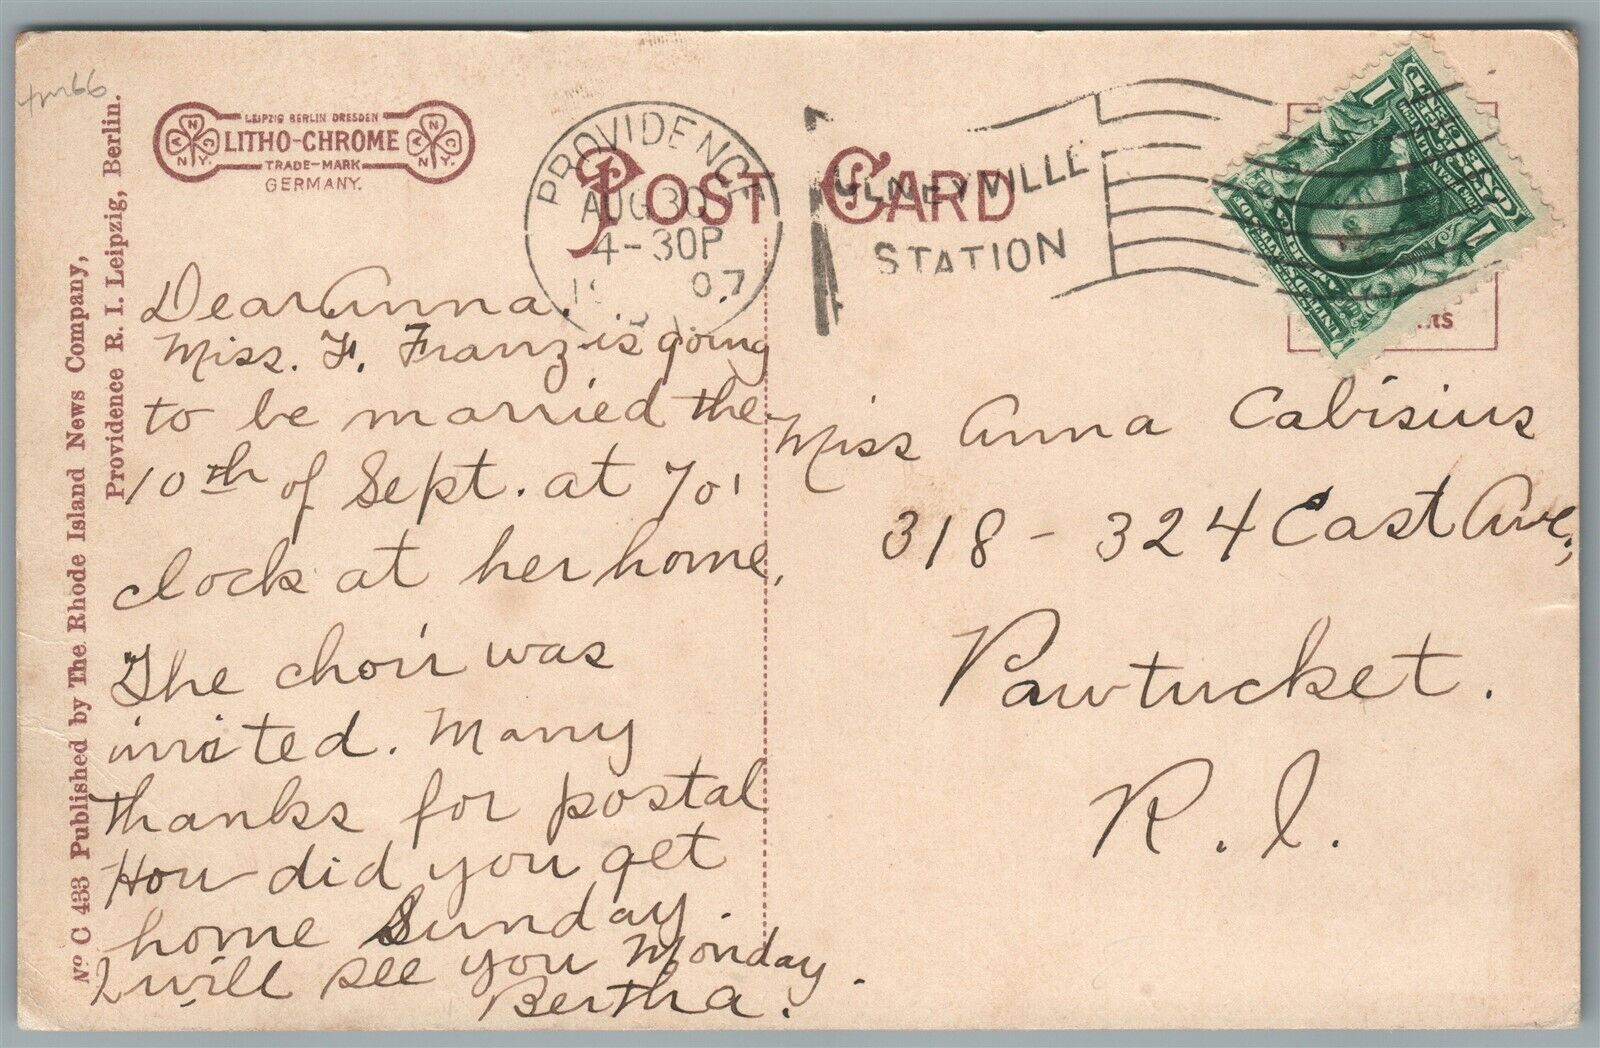 tm66
LEIPZIG BERLIN DRESDEN
LITHO-CHROME
TRADE-MARK
GERMANY.
A N C
N Y C.
PROVIDENCE
AUG 30
4-30P
07
OLNEYVILLE
STATION
POST CARD
1
1
Nº C 433 Published by The Rhode Island News Company,
Providence R. I. Leipzig, Berlin.
Dear Anna.
Miss. F. Franz is going
to be married the
10th of Sept. at 7 o'
clock at her home,
The choir was
invited. Many
thanks for postal
How did you get
home Sunday.
I will see you Monday.
Bertha.
Miss Anna Cabisius
318 - 324 East Ave,
Pawtucket.
R. I.